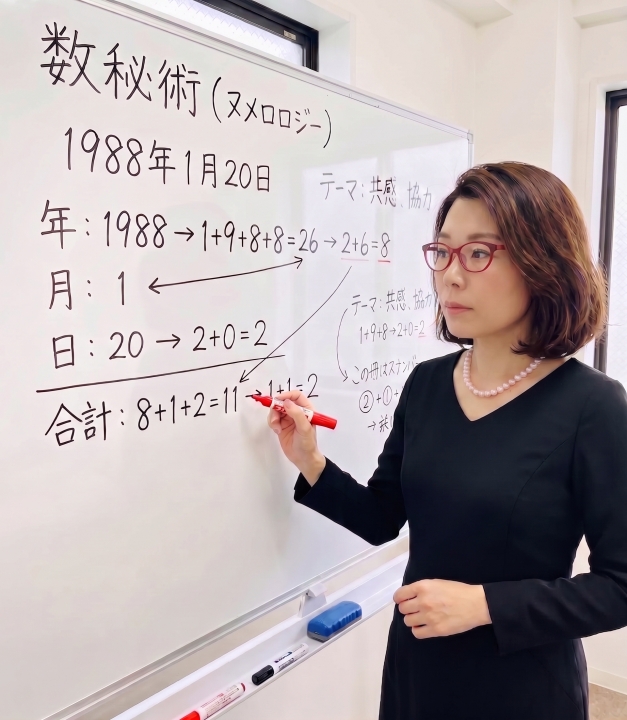 数秘術(ヌメロロジー)
1988年1月20日
年:1988→1+9+8+8=26→2+6=8
月:1
日:20→2+0=2
合計:8+1+2=11→1+1=2
テーマ:共感、協力
テーマ:共感、協力
1+9+8→2+0=2
②+①+